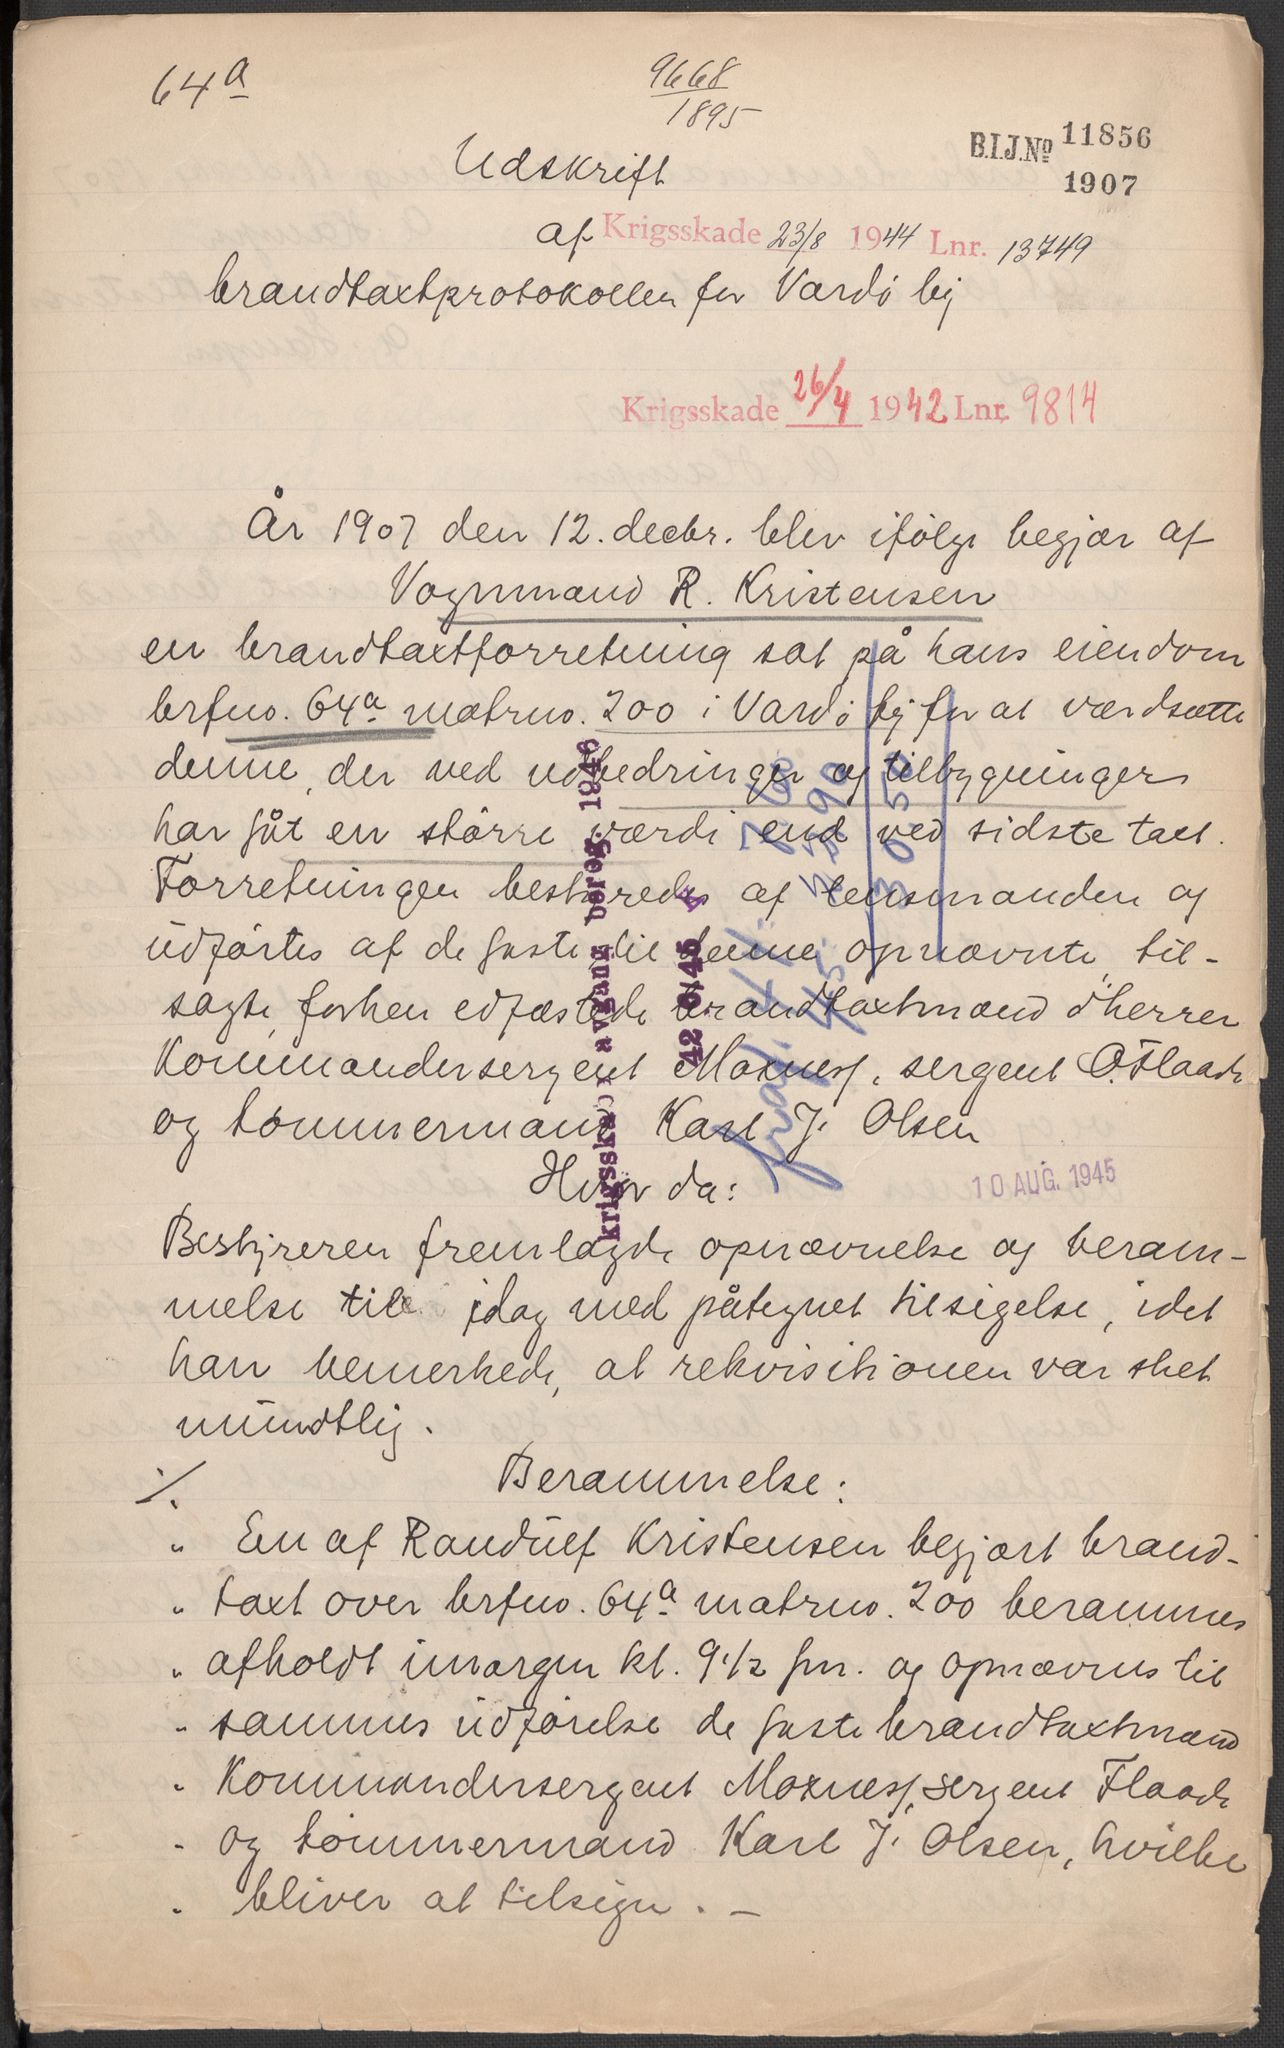 64a
9668
1895
B.I.J.No 11856
1907
Udskrift
af
Krigsskade 23/8 1944 Lnr. 13749
brandtaxtprotokollen for Vardö by
Krigsskade 26/4 1942 Lnr. 9814
År 1907 den 12. decbr. blev ifölge begjær af
Vognmand R. Kristensen
en brandtaxtforretning sat på hans eiendom
brfno. 64a matrno. 200 i Vardö by for at værdsætte
denne, der ved udbedringer og tilbygninger
har fåt en större værdi end ved sidste taxt.
Forretningen bestyredes af lensmanden og
udførtes af de faste til denne opnævnte, til-
sagte, forhen edfæstede brandtaxtmænd d'herrer
Kommandersergent Moxness, sergent O. Flaade
og tömmermand Karl J. Olsen
Hvor da:
10 AUG. 1945
Bestyreren fremlagde opnævnelse og beram-
melse til idag med påtegnet tilsigelse, idet
han bemerkede, at rekvisitionen var sket
mundtlig.
./.
Berammelse:
" En af Randulf Kristensen begjært brand-
" taxt over brfno. 64a matrno. 200 berammes
" afholdt imorgen kl. 9 1/2 fm. og opnævnes til
" sammes udförelse de faste brandtaxtmænd
" Kommandersergent Moxness, sergent Flaade
" og tömmermand Karl J. Olsen, hvilke
" bliver at tilsige. –
krigsskade avgang 1946
42 6/45
3050